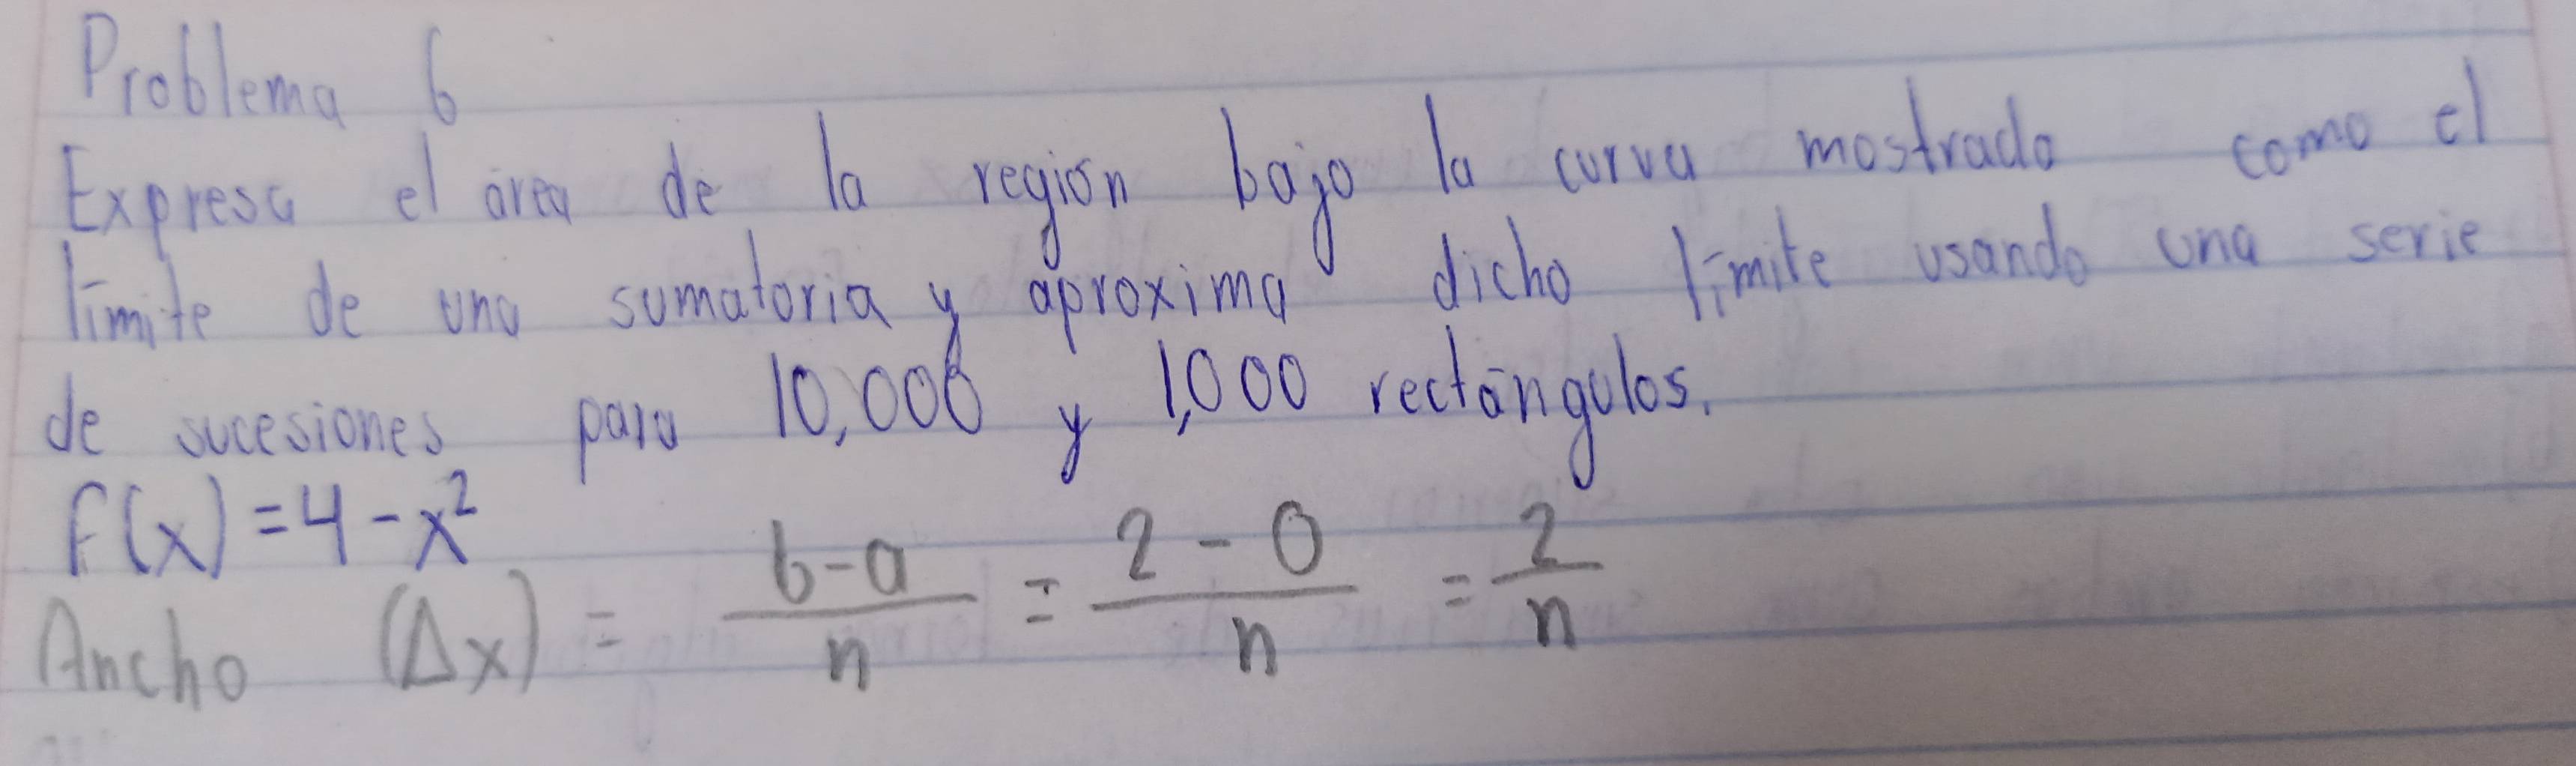 Problema 6
Expresa el área de la región bajo la curva mostrado como el
límite de una sumatoria y aproxima dicho límite usando una serie
de sucesiones para 10,000 y 1,000 rectángulos.
f(x)=4-x²
Ancho (Δx) = b-a/n = 2-0/n = 2/n